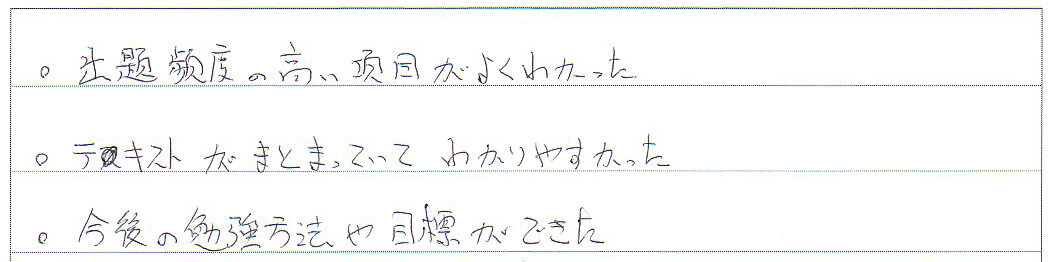 ○ 出題頻度の高い項目がよくわかった
○ テキストがまとまっていてわかりやすかった
○ 今後の勉強方法や目標ができた